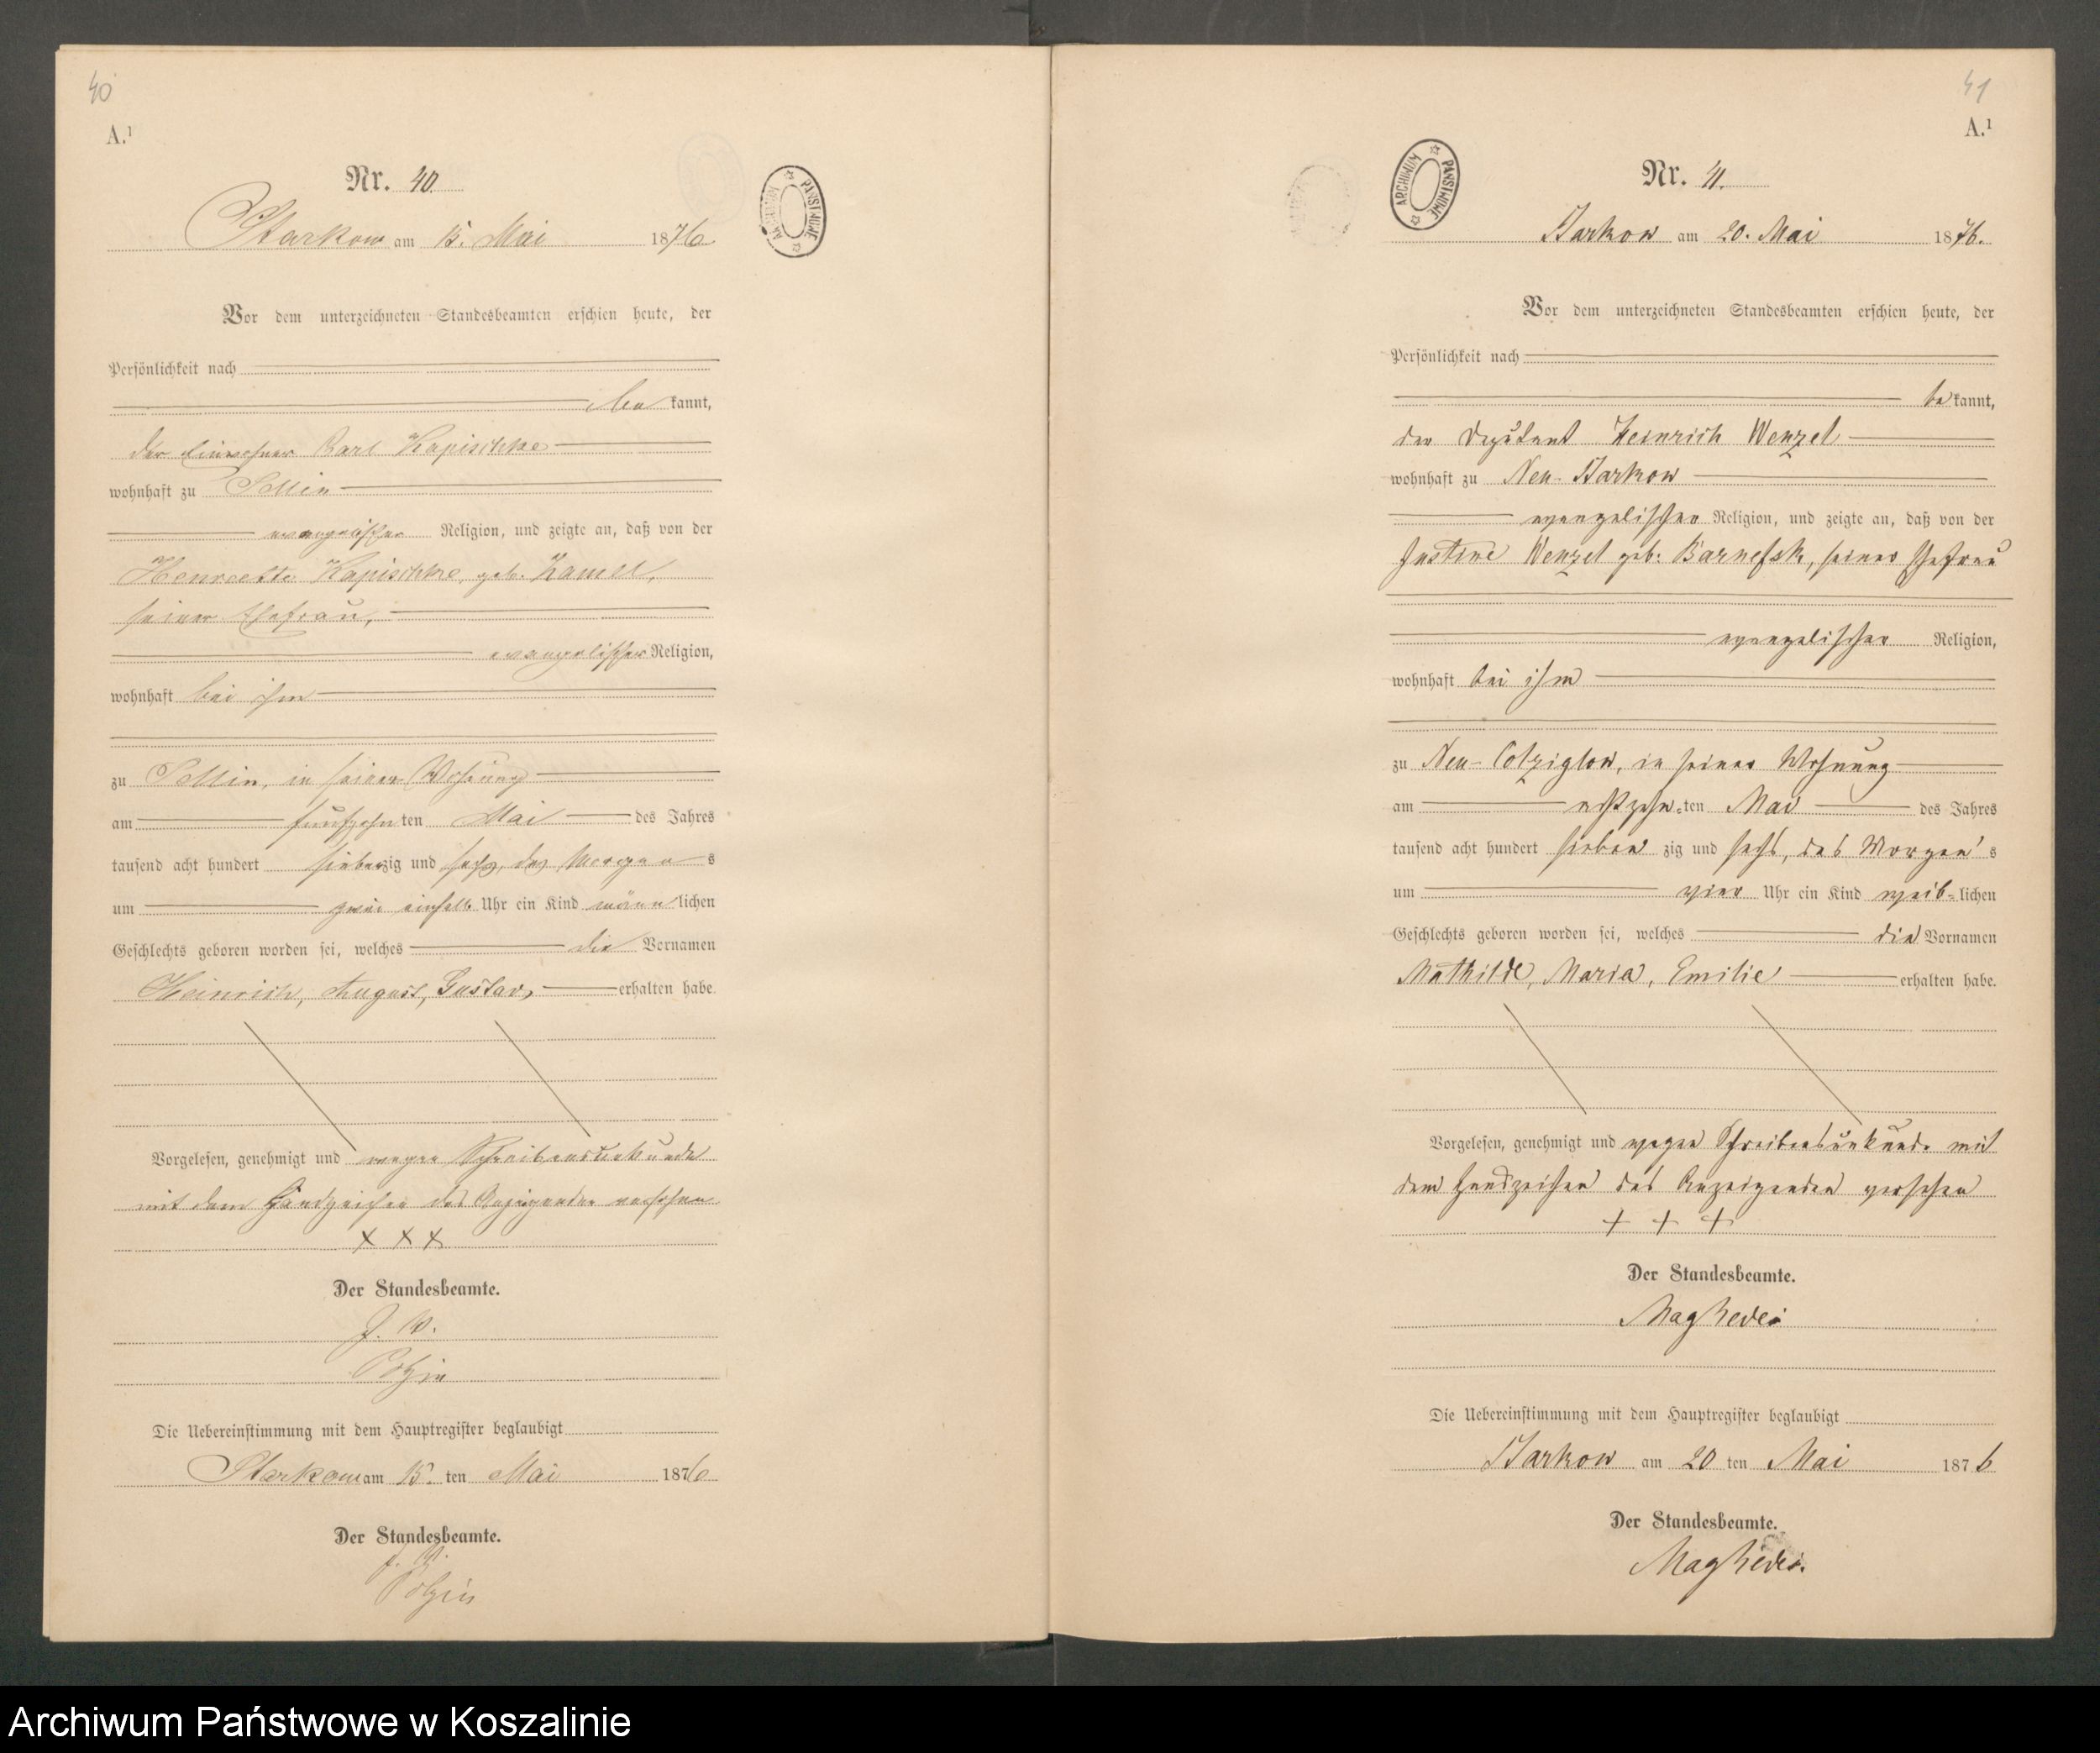 40
A.¹
Nr. 40.
ARCHIWUM PAŃSTWOWE
Starkow am 15. Mai 1876
Vor dem unterzeichneten Standesbeamten erschien heute, der
Persönlichkeit nach
be kannt,
der Einwohner Carl Kapischke
wohnhaft zu Sellin
evangelischer Religion, und zeigte an, daß von der
Henreette Kapischke, geb. Kamell,
seiner Ehefrau,
evangelischer Religion,
wohnhaft bei ihm
zu Sellin, in seiner Wohnung
am fünfzehn ten Mai des Jahres
tausend acht hundert siebenzig und sechs, des Morgen s
um zwei einhalb Uhr ein Kind männ lichen
Geschlechts geboren worden sei, welches die Vornamen
Heinrich, August, Gustav, erhalten habe.
Vorgelesen, genehmigt und wegen Schreibensunkunde
mit dem Handzeichen des Anzeigenden versehen
x x x
Der Standesbeamte.
J. V.
Polzin
Die Uebereinstimmung mit dem Hauptregister beglaubigt
Starkow am 15. ten Mai 1876
Der Standesbeamte.
J. V.
Polzin
41
A.¹
Nr. 41.
ARCHIWUM PAŃSTWOWE
Starkow am 20. Mai 1876.
Vor dem unterzeichneten Standesbeamten erschien heute, der
Persönlichkeit nach
be kannt,
der Deputant Heinrich Wenzel
wohnhaft zu Neu-Starkow
evangelischer Religion, und zeigte an, daß von der
Justine Wenzel geb: seiner Ehefrau
evangelischer Religion,
wohnhaft bei ihm
zu Neu- in seiner Wohnung
am achtzehn-ten Mai des Jahres
tausend acht hundert sieben zig und sechs, des Morgen's
um vier Uhr ein Kind weib-lichen
Geschlechts geboren worden sei, welches die Vornamen
Mathilde, Maria, Emilie erhalten habe.
Vorgelesen, genehmigt und wegen Schreibensunkunde mit
dem Handzeichen des Anzeigenden versehen
+ + +
Der Standesbeamte.
Die Uebereinstimmung mit dem Hauptregister beglaubigt
Starkow am 20 ten Mai 1876
Der Standesbeamte.
Archiwum Państwowe w Koszalinie